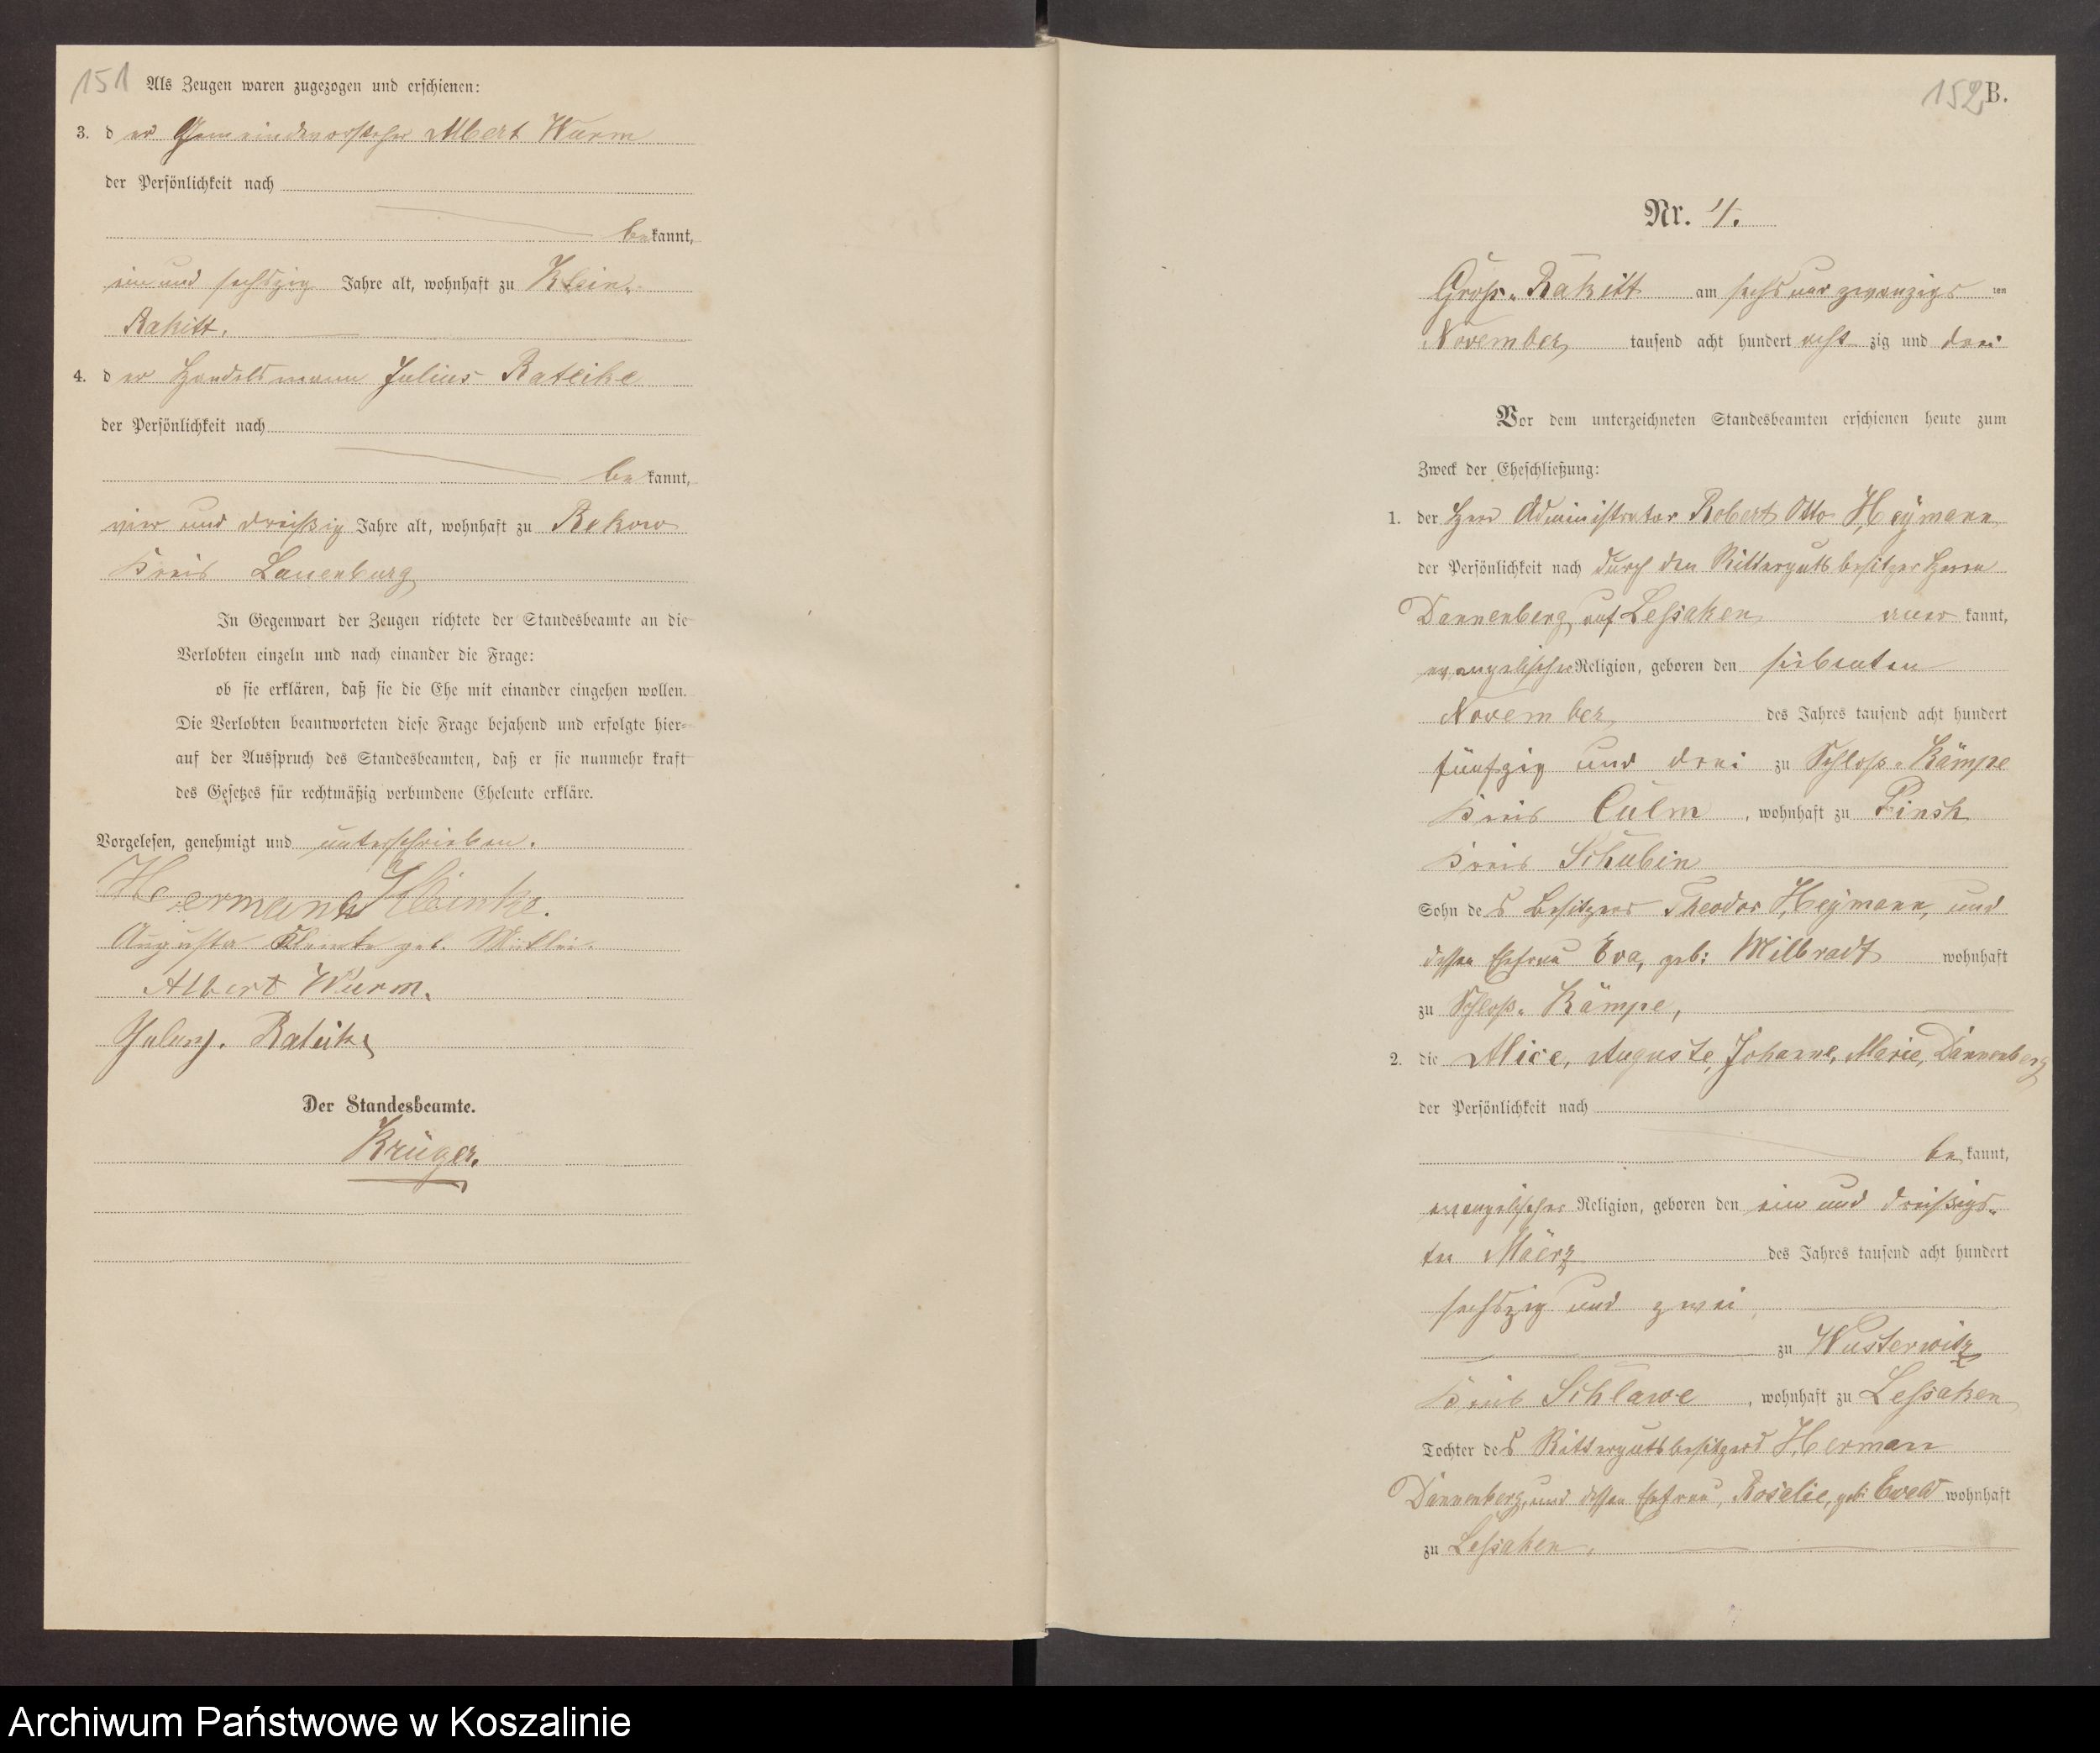 151
Als Zeugen waren zugezogen und erschienen:
3. der Gemeindevorsteher Albert Wurm
der Persönlichkeit nach
bekannt,
ein und sechszig Jahre alt, wohnhaft zu Klein-
Rakitt.
4. der Handelsmann Julius Rateike
der Persönlichkeit nach
bekannt,
vier und dreißig Jahre alt, wohnhaft zu Rekow
Kreis Lauenburg
In Gegenwart der Zeugen richtete der Standesbeamte an die
Verlobten einzeln und nach einander die Frage:
ob sie erklären, daß sie die Ehe mit einander eingehen wollen.
Die Verlobten beantworteten diese Frage bejahend und erfolgte hier-
auf der Ausspruch des Standesbeamten, daß er sie nunmehr kraft
des Gesetzes für rechtmäßig verbundene Eheleute erkläre.
Vorgelesen, genehmigt und unterschrieben.
Hermann
Auguste geb.
Albert Wurm.
Rateike
Der Standesbeamte.
Krüger.
152 B.
Nr. 4.
Groß-Rakitt am sechs und zwanzigsten
November tausend acht hundert achtzig und drei
Vor dem unterzeichneten Standesbeamten erschienen heute zum
Zweck der Eheschließung:
1. der Herr Administrator Robert Otto Heÿmann
der Persönlichkeit nach durch den Rittergutsbesitzer Herrn
Dannenberg auf Leßaken anerkannt,
evangelischer Religion, geboren den siebenten
November des Jahres tausend acht hundert
fünfzig und drei zu Schloß-Kämpe
Kreis Culm, wohnhaft zu Pinsk
Kreis Schubin
Sohn des Besitzers Theodor Heÿmann, und
dessen Ehefrau Eva, geb: Milbradt wohnhaft
zu Schloß-Kämpe,
2. die Alice, Auguste, Johanne, Marie, Dannenberg
der Persönlichkeit nach
bekannt,
evangelischer Religion, geboren den ein und dreißigs-
ten Märrz des Jahres tausend acht hundert
sechszig und zwei
zu Wusterwitz
Kreis Schlawe, wohnhaft zu Leßaken
Tochter des Rittergutsbesitzers Herman
Dannenberg, und dessen Ehefrau, Rosalie, geb: Ewald wohnhaft
zu Leßaken.
Archiwum Państwowe w Koszalinie